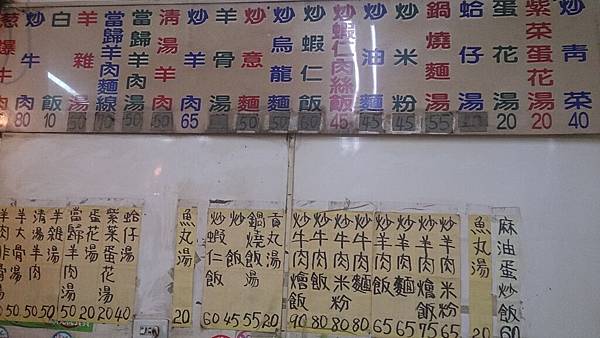 炒青菜 40
紫菜蛋花湯 20
蛋花湯 20
蛤仔湯
鍋燒麵湯 55
炒米粉 45
炒油麵 45
炒蝦仁肉絲飯 45
炒蝦仁飯 60
炒烏龍麵 50
炒意麵 50
羊骨湯
炒羊肉 65
清湯羊肉 50
當歸羊肉湯 50
當歸羊肉麵線 70
羊雜湯 50
白飯 10
炒牛肉 80
爆牛肉
麻油蛋炒飯 60
魚丸湯 20
炒羊肉米粉 65
炒羊肉燴飯 75
炒羊肉麵 65
炒羊肉飯 65
炒牛肉麵 80
炒牛肉米粉 80
炒牛肉飯 80
炒牛肉燴飯 90
貢丸湯 20
鍋燒飯湯 55
炒飯 45
炒蝦仁飯 60
魚丸湯 20
蛤仔湯 40
紫菜蛋花湯 20
蛋花湯 20
當歸羊肉湯 50
羊雜湯 50
清湯羊肉 50
羊大骨湯 50